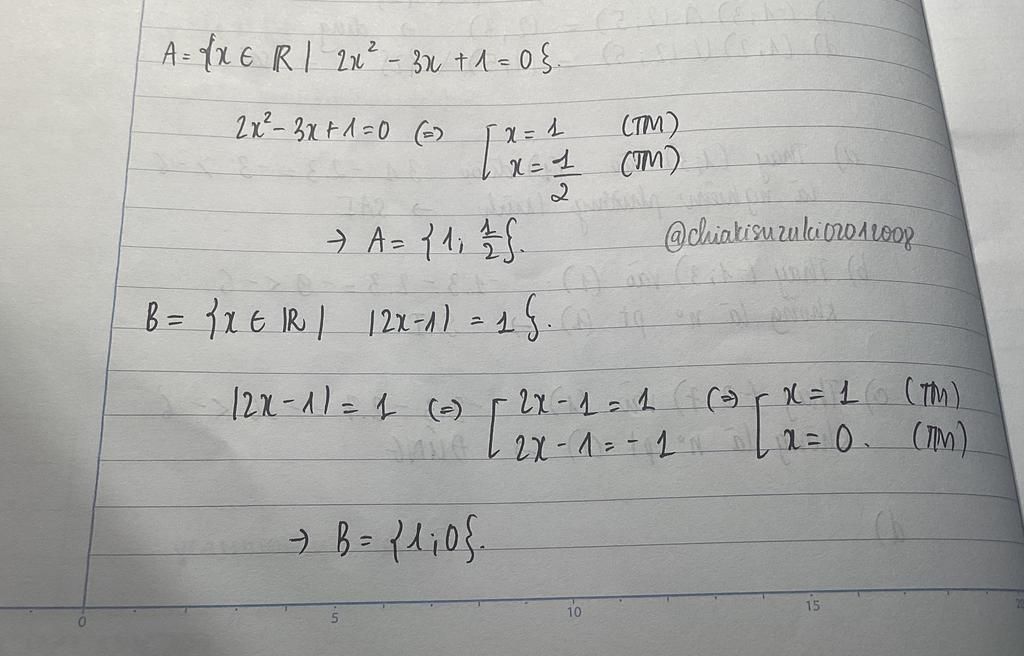 A = {x ∈ ℝ | 2x² - 3x + 1 = 0}.
2x² - 3x + 1 = 0 (=) [ x = 1 (TM)
x = 1/2 (TM)
→ A = {1; 1/2}.
@chiakisuzuki02012008
B = {x ∈ ℝ | |2x-1| = 1}.
|2x-1| = 1 (=) [ 2x - 1 = 1 (=) [ x = 1 (TM)
2x - 1 = -1 x = 0. (TM)
→ B = {1; 0}.
0 5 10 15